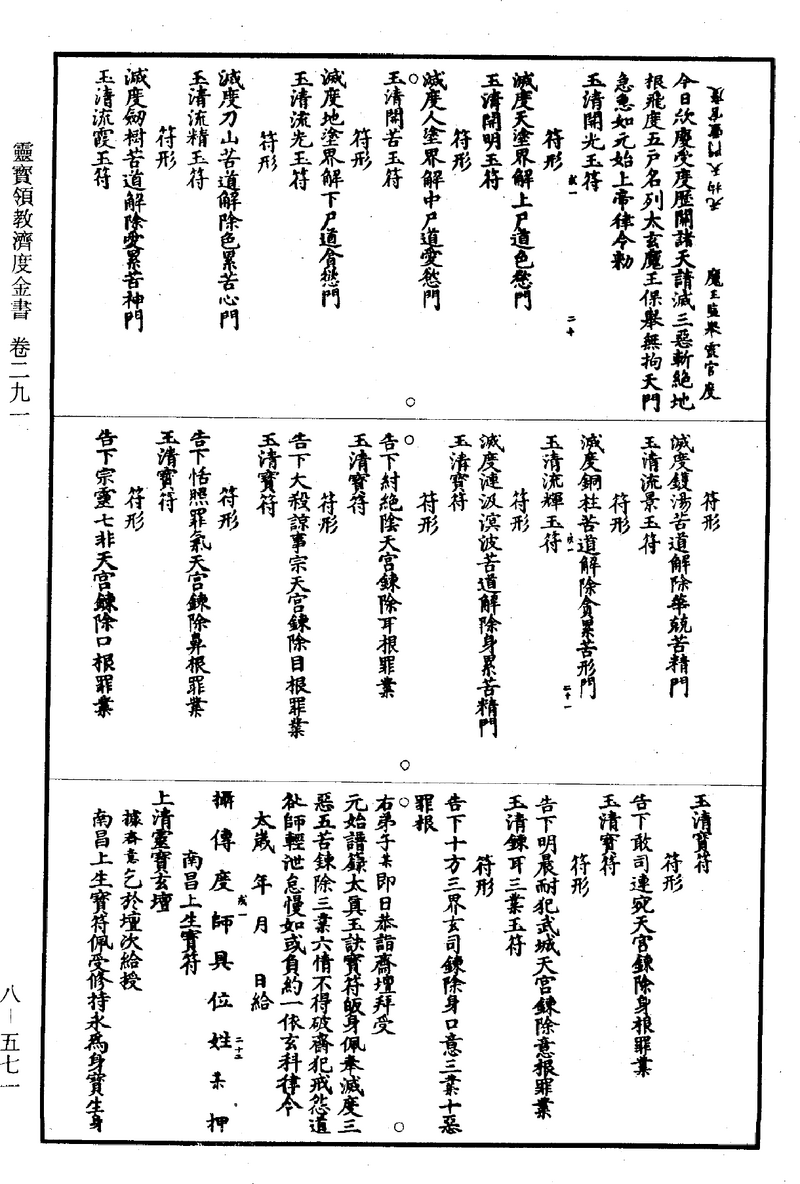 靈寶領教濟度金書　卷二九一
八－五七一
魔王監舉靈官度
今日欣慶受度歷關諸天請滅三惡斬絕地
根飛度五戶名列太玄魔王保舉無拘天門
急急如元始上帝律令勑
玉清開光玉符
符形
滅度天塗界解上尸道色慾門
玉清開明玉符
符形
滅度人塗界解中尸道愛慾門
玉清開苦玉符
符形
滅度地塗界解下尸道貪慾門
玉清流光玉符
符形
滅度刀山苦道解除色累苦心門
玉清流精玉符
符形
滅度劒樹苦道解除愛累苦神門
玉清流霞玉符
符形
滅度鑊湯苦道解除華競苦精門
玉清流景玉符
符形
滅度銅柱苦道解除貪累苦形門
玉清流輝玉符
符形
滅度漣汲溟波苦道解除身累苦精門
玉清寶符
符形
告下紂絕陰天宮鍊除耳根罪業
玉清寶符
符形
告下大殺諒事宗天宮鍊除目根罪業
玉清寶符
符形
告下恬照罪氣天宮鍊除鼻根罪業
玉清寶符
符形
告下宗靈七非天宮鍊除口根罪業
玉清寶符
符形
告下敢司連宛天宮鍊除身根罪業
玉清寶符
符形
告下明晨耐犯武城天宮鍊除意根罪業
玉清鍊耳三業玉符
符形
告下十方三界玄司鍊除身口意三業十惡
罪根
右弟子某即日恭詣齋壇拜受
元始譜籙太真玉訣寶符皈身佩奉滅度三
惡五苦鍊除三業六情不得破齋犯戒怨道
咎師輕泄怠慢如或負約一依玄科律令
太歲　年　月　日給
攝傳度師具位姓某押
南昌上生寶符
上清靈寶玄壇
據齋意乞於壇次給授
南昌上生寶符佩受修持永為身寶生身